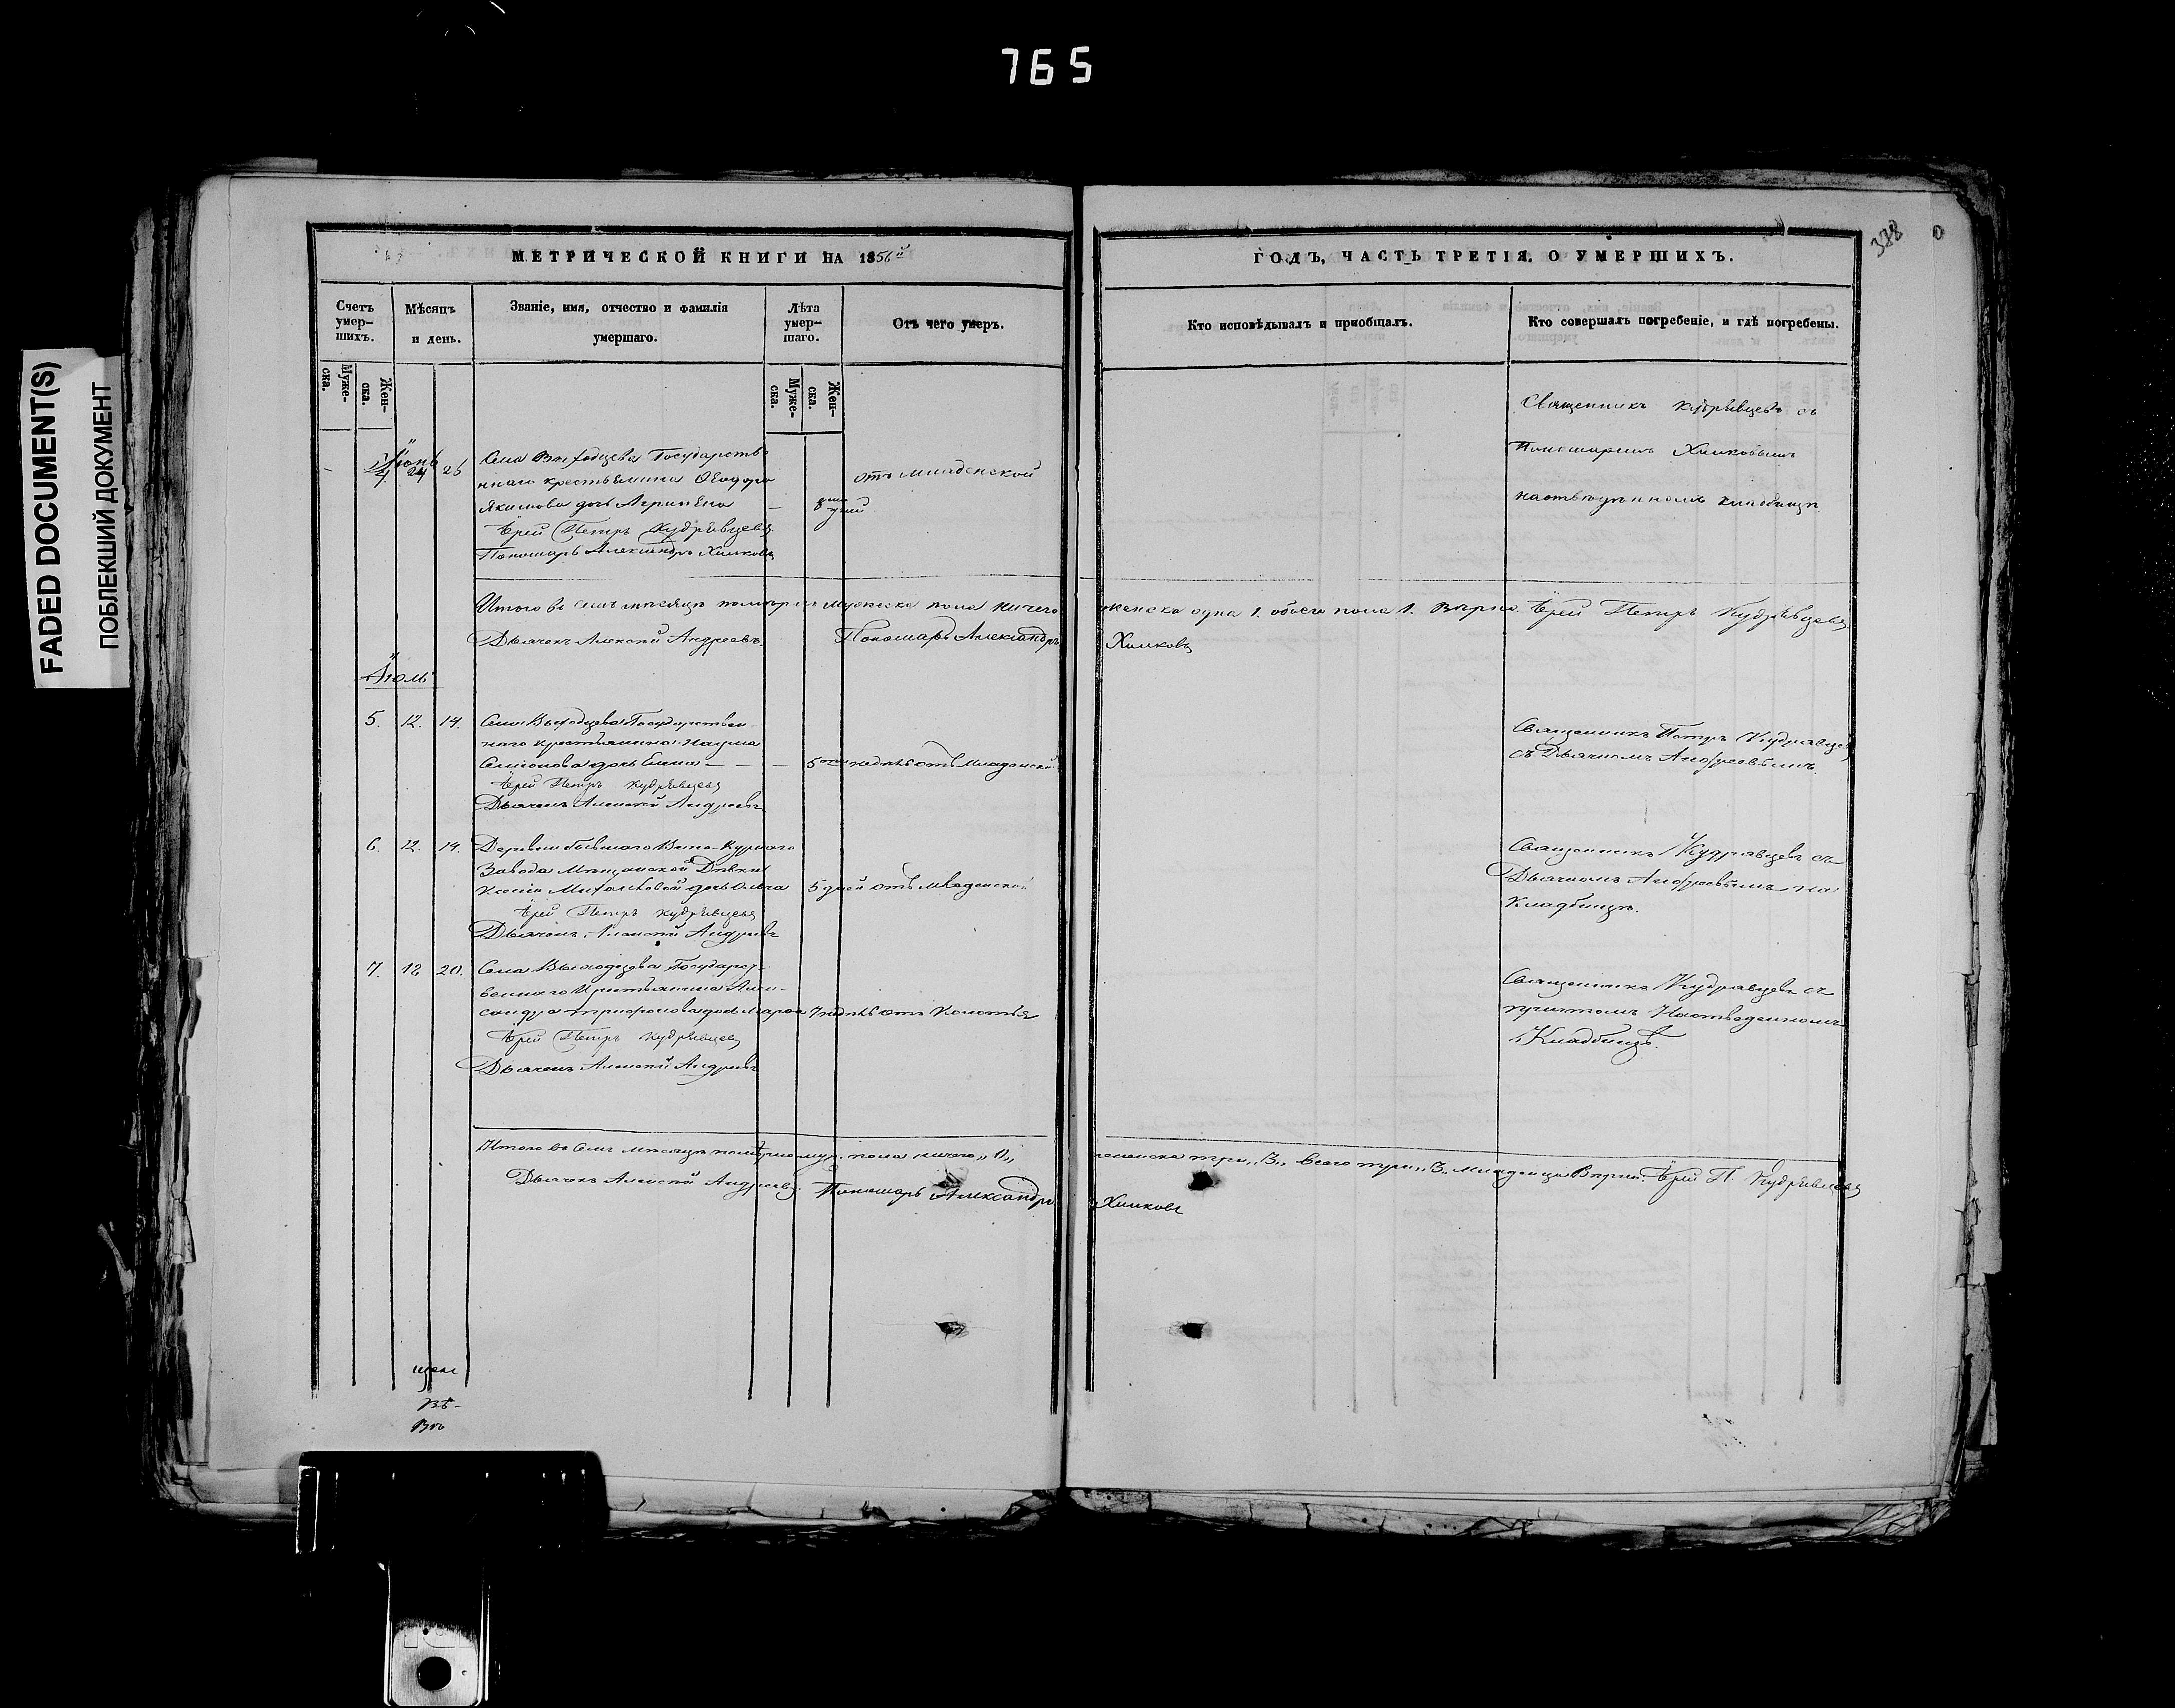 765
FADED DOCUMENT(S)
ПОБЛЕКШИЙ ДОКУМЕНТ
338
МЕТРИЧЕСКОЙ КНИГИ НА 1856й
ГОДЪ, ЧАСТЬ ТРЕТІЯ, О УМЕРШИХЪ.
Счетъ умер-шихъ.
Мѣсяцъ и день.
Званіе, имя, отчество и фамилія умершаго.
Лѣта умер-шаго.
Отъ чего умеръ.
Кто исповѣдывалъ и пріобщалъ.
Кто совершалъ погребеніе, и гдѣ погребены.
Муже-ска.
Жен-ска.
Муже-ска.
Жен-ска.
Іюнь
4 24 26
Села Выходцева Государстве
ннаго крестьянина Ѳеодора
Якимова дочь Агрипена
Іерей Петръ Кудрявцевъ
Пономарь Александръ Химковъ
8
отъ младенской
Священникъ Кудрявцевъ съ
Пономаремъ Химковымъ
кладбищѣ
Итого въ семъ мѣсяцѣ померли мужеска пола ничего
женска одна 1. обоего пола 1. Вѣрно. Іерей Петръ Кудрявцевъ
Дьячекъ Алексѣй Андреевъ. Пономарь Александръ
Химковъ
Іюль
5. 12. 14.
Села Выходцева Государствен-
наго крестьянина Наума
Семионова дочь Елена
Іерей Петръ Кудрявцевъ
Дьячекъ Алексѣй Андреевъ
5 недѣль отъ младенской
Священникъ Петръ Кудрявцевъ
съ Дьячкомъ Андреевымъ.
6. 12. 14.
Деревни бывшаго Вино-Курнаго
Завода Мещанской Дѣвки
Ксеніи дочь Ольга
Іерей Петръ Кудрявцевъ
Дьячекъ Алексѣй Андреевъ
5 дней отъ младенской
Священникъ Кудрявцевъ съ
Дьячкомъ Андреевымъ на
Кладбищѣ.
7. 18 20.
Села Выходцева Государст-
веннаго Крестьянина Алек-
сандра дочь Марѳа
Іерей Петръ Кудрявцевъ
Дьячекъ Алексѣй Андреевъ
7 недѣль отъ
Священникъ Кудрявцевъ съ
причтомъ На отведенномъ
Кладбищѣ.
Итого въ Семъ мѣсяцѣ померло муж. пола ничего „0„
женска три „3„ всего три „3„ младенца Вѣрно. Іерей П. Кудрявцевъ
Дьячекъ Алексѣй Андреевъ. Пономарь Александръ
Химковъ